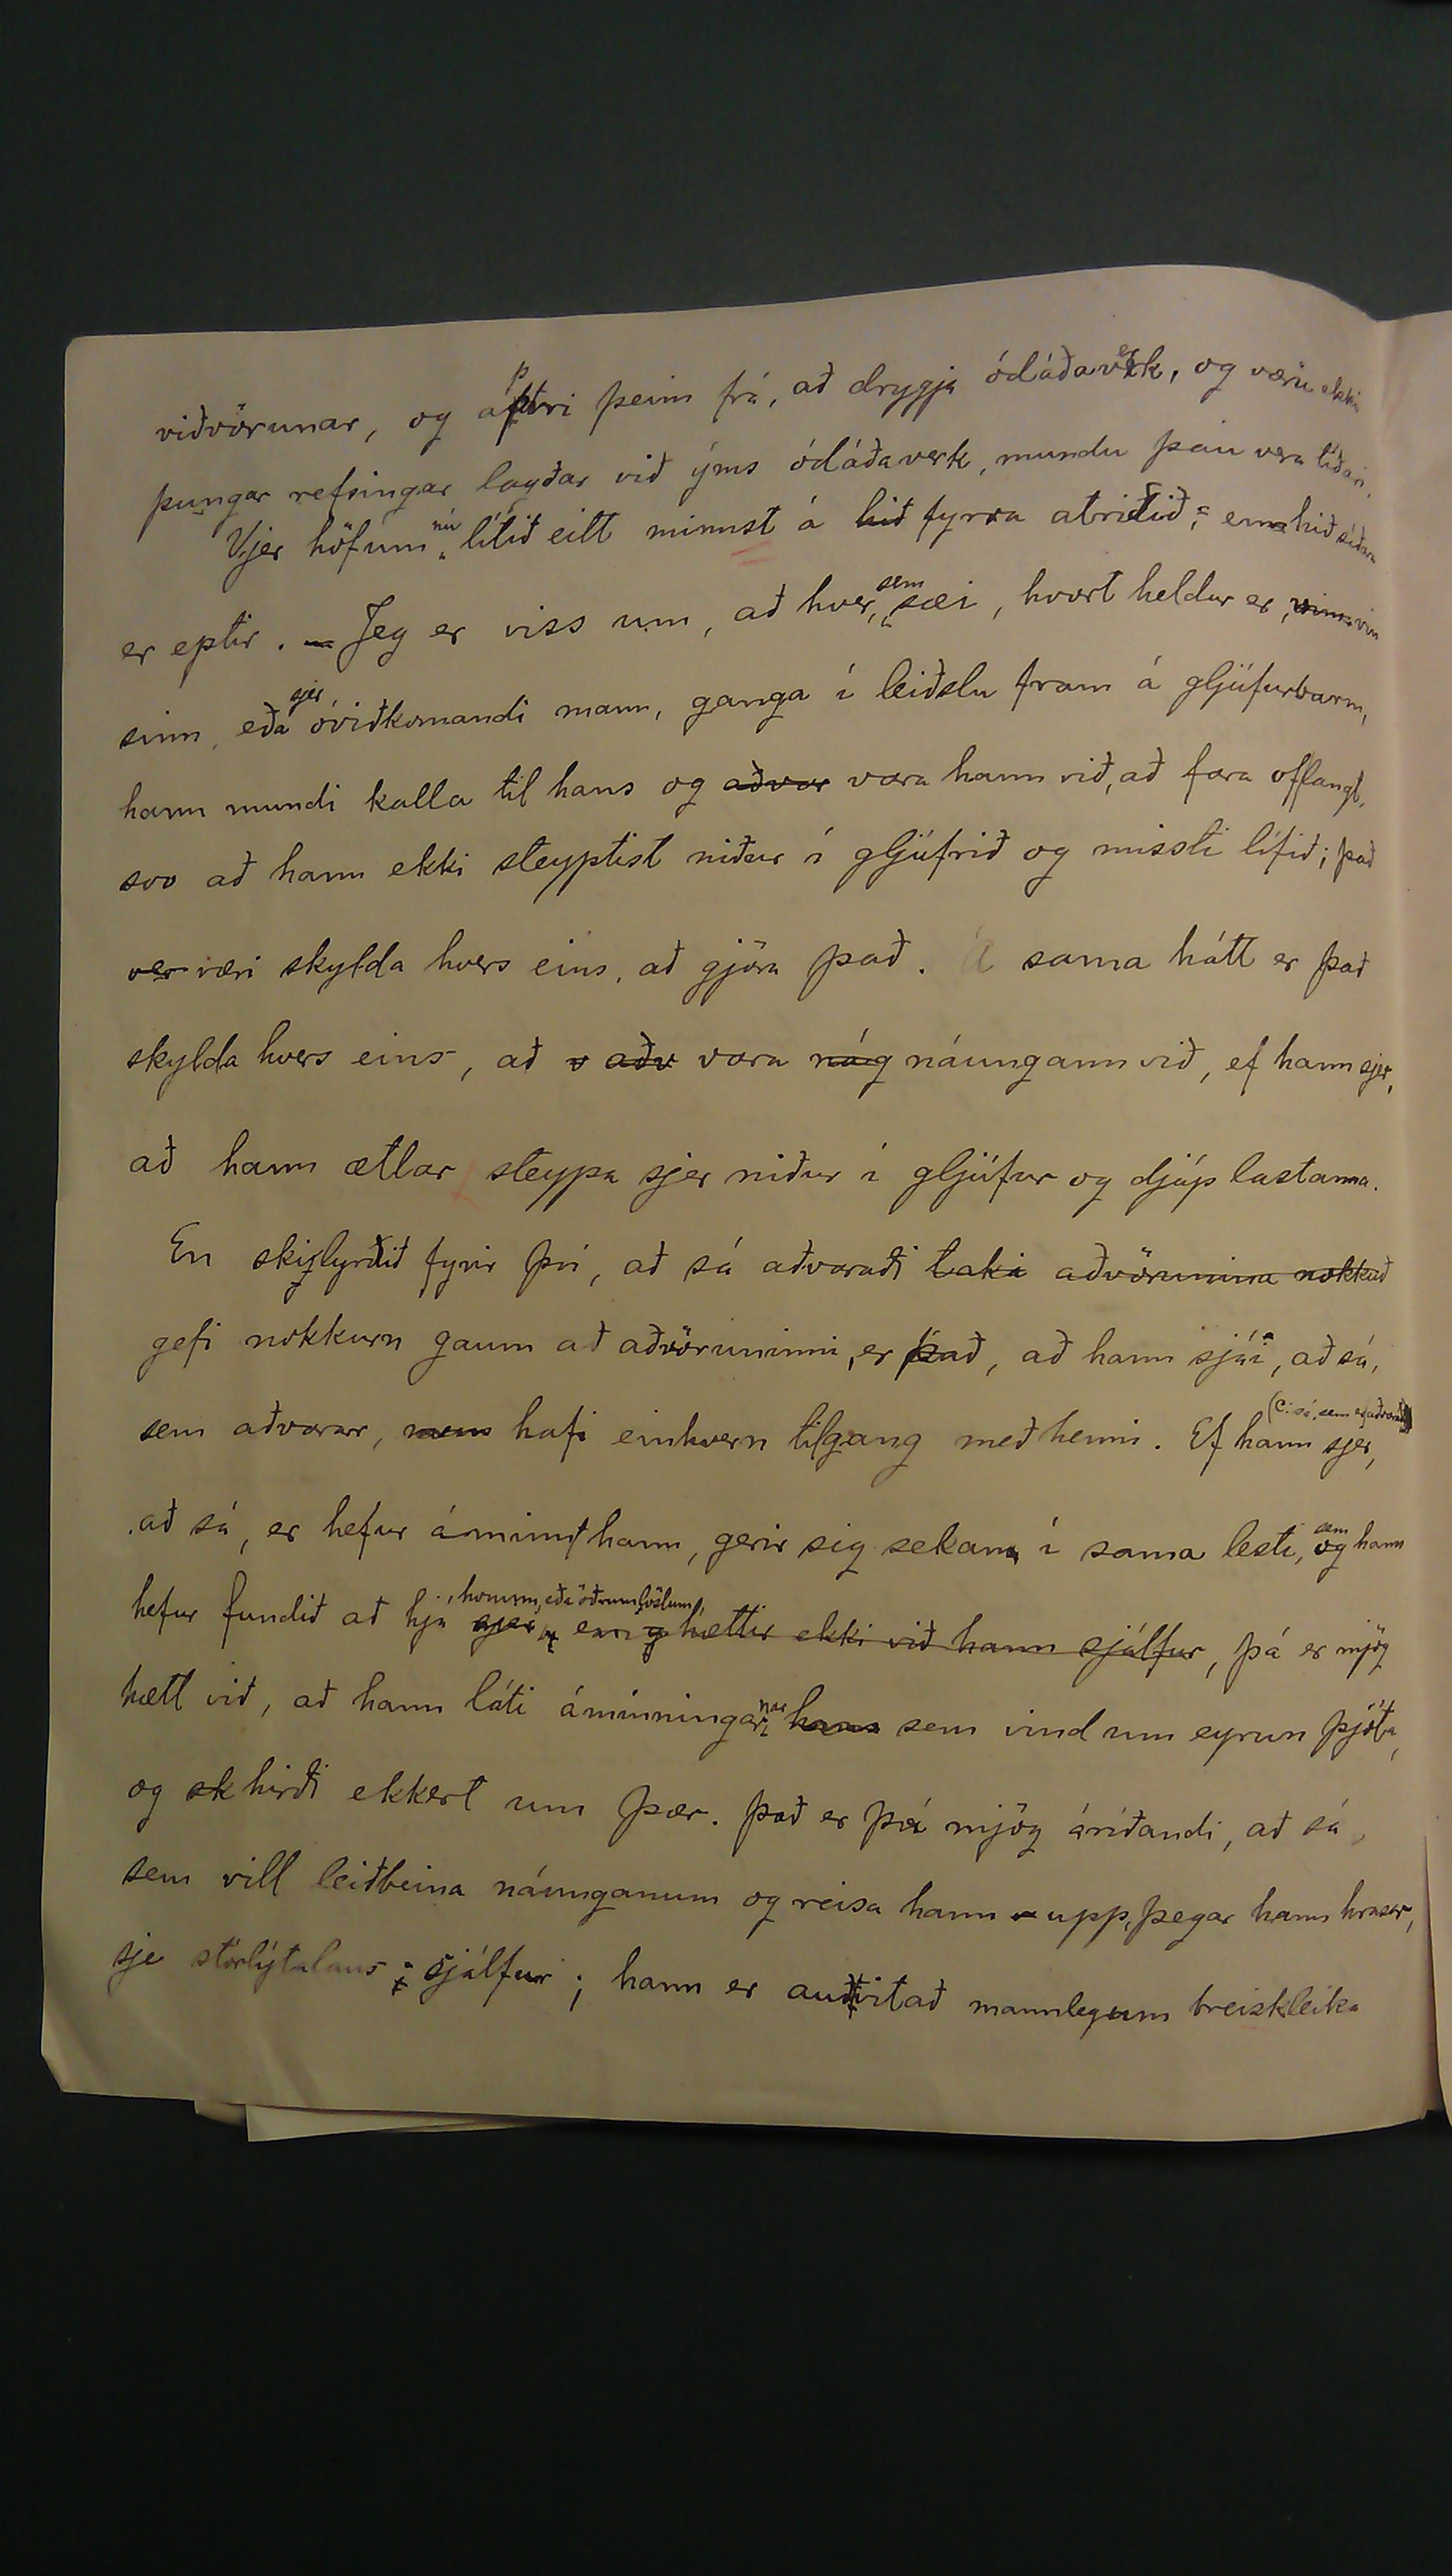 viðvörunar, og aptri þeim frá, að drygja ódáðaverk, og væru ekki
þungar refsingar lagðar við ýms ódáðaverk, mundu þau vera tíðari.
Vjer höfum nú lítið eitt minnst á hið fyrra atriðið; en hið síðara
er eptir. — Jeg er viss um, að hver, sem sæi, hvort heldur er, vin
sinn, eða sjer óviðkomandi mann, ganga í leiðslu fram á gljúfurbarm,
hann mundi kalla til hans og aðvar vara hann við, að fara oflangt,
svo að hann ekki steyptist niður í gljúfrið og missti lífið; það
ver væri skylda hvers eins, að gjöra það. Á sama hátt er það
skylda hvers eins, að v aðv vara nág náungann við, ef hann sjer,
að hann ætlar steypa sjer niður í gljúfur og djúp lastanna.
En skilyrðið fyrir því, að sá aðvaraði taki aðvörunina nokkuð
gefi nokkurn gaum að aðvöruninni, er það, að hann sjái, að sá,
sem aðvarar, hafi einhvern tilgang með henni. Ef hann (ɔ: sá, sem er aðvaraður) sjer,
að sá, er hefur áminnt hann, gerir sig sekan í sama lesti, sem og hann
hefur fundið að hjá honum, eða öðrum löstum, sjer, en g hættir ekki við hann sjálfur, þá er mjög
hætt við, að hann láti áminningarnar hans sem vind um eyrun þjóta,
og sk hirði ekkert um þær. Það er þá mjög áríðandi, að sá,
sem vill leiðbeina náunganum og reisa hann upp, þegar hann hrasar,
sje stórlýtalaus sjálfur; hann er auðvitað mannlegum breiskleika